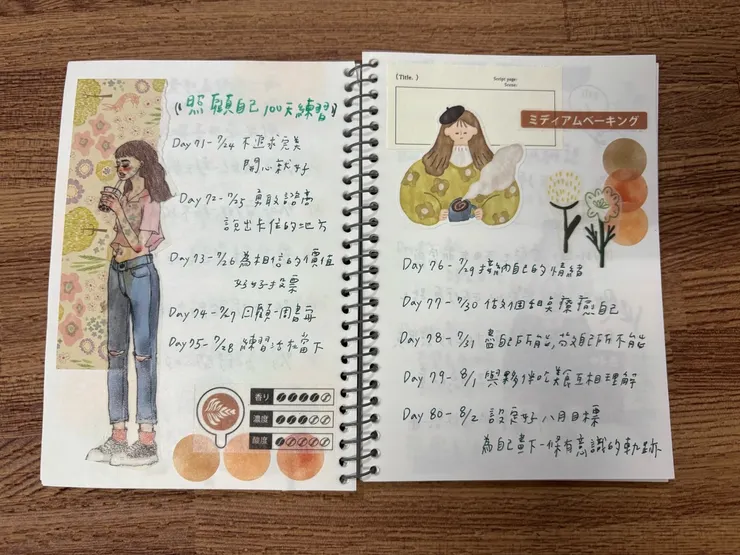 《照顧自己100天練習》
Day 71- 7/24 不追求完美
開心就好
Day 72- 7/25 勇敢諮商
說出卡住的地方
Day 73- 7/26 為相信的價值
好好投票
Day 74- 7/27 回顧一周
Day 75- 7/28 練習活在當下
香り
濃度
酸度
(Title. )
Script page:
ミディアムベーキング
Day 76- 7/29 接納自己的情緒
Day 77- 7/30 做個甜點療癒自己
Day 78- 7/31 盡自己所能,放自己所不能
Day 79- 8/1 與夥伴吃飯互相理解
Day 80- 8/2 設定好八月目標
為自己畫下一條有意識的軌跡